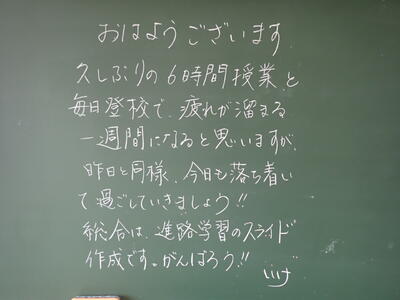 おはようございます
久しぶりの6時間授業と
毎日登校で、疲れが溜まる
一週間になると思いますが、
昨日と同様、今日も落ち着い
て過ごしていきましょう!!
総合は、進路学習のスライド
作成です。がんばろう!!